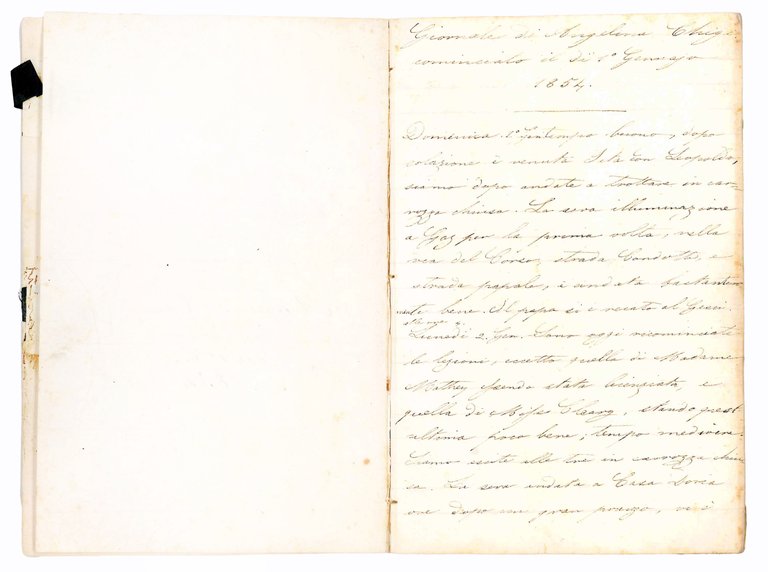 Giornale di Angelina Chigi
cominciato il di 1° Gennajo
1854.
Domenica 1° Gen tempo buono, dopo
colazione è venuta con Leopoldo,
siamo dopo andate a trottare in car-
rozza chiusa. La sera illuminazione
a Gaz per la prima volta, nella
via del Corso, strada Condotti, e
strada papale, è andata bastante-
mente bene. Il papa si è recato al Gesù.
Lunedì 2. Gen. Sono oggi ricominciate
le lezioni, eccetto quella di Madame
Mathey essendo stata licenziata, e
quella di Miss Cleary, stando quest
ultima poco bene; tempo mediocre.
Siamo escite alle tre in carrozza chiu-
sa. La sera andata a Casa Doria
ove dopo un gran pranzo, vi è